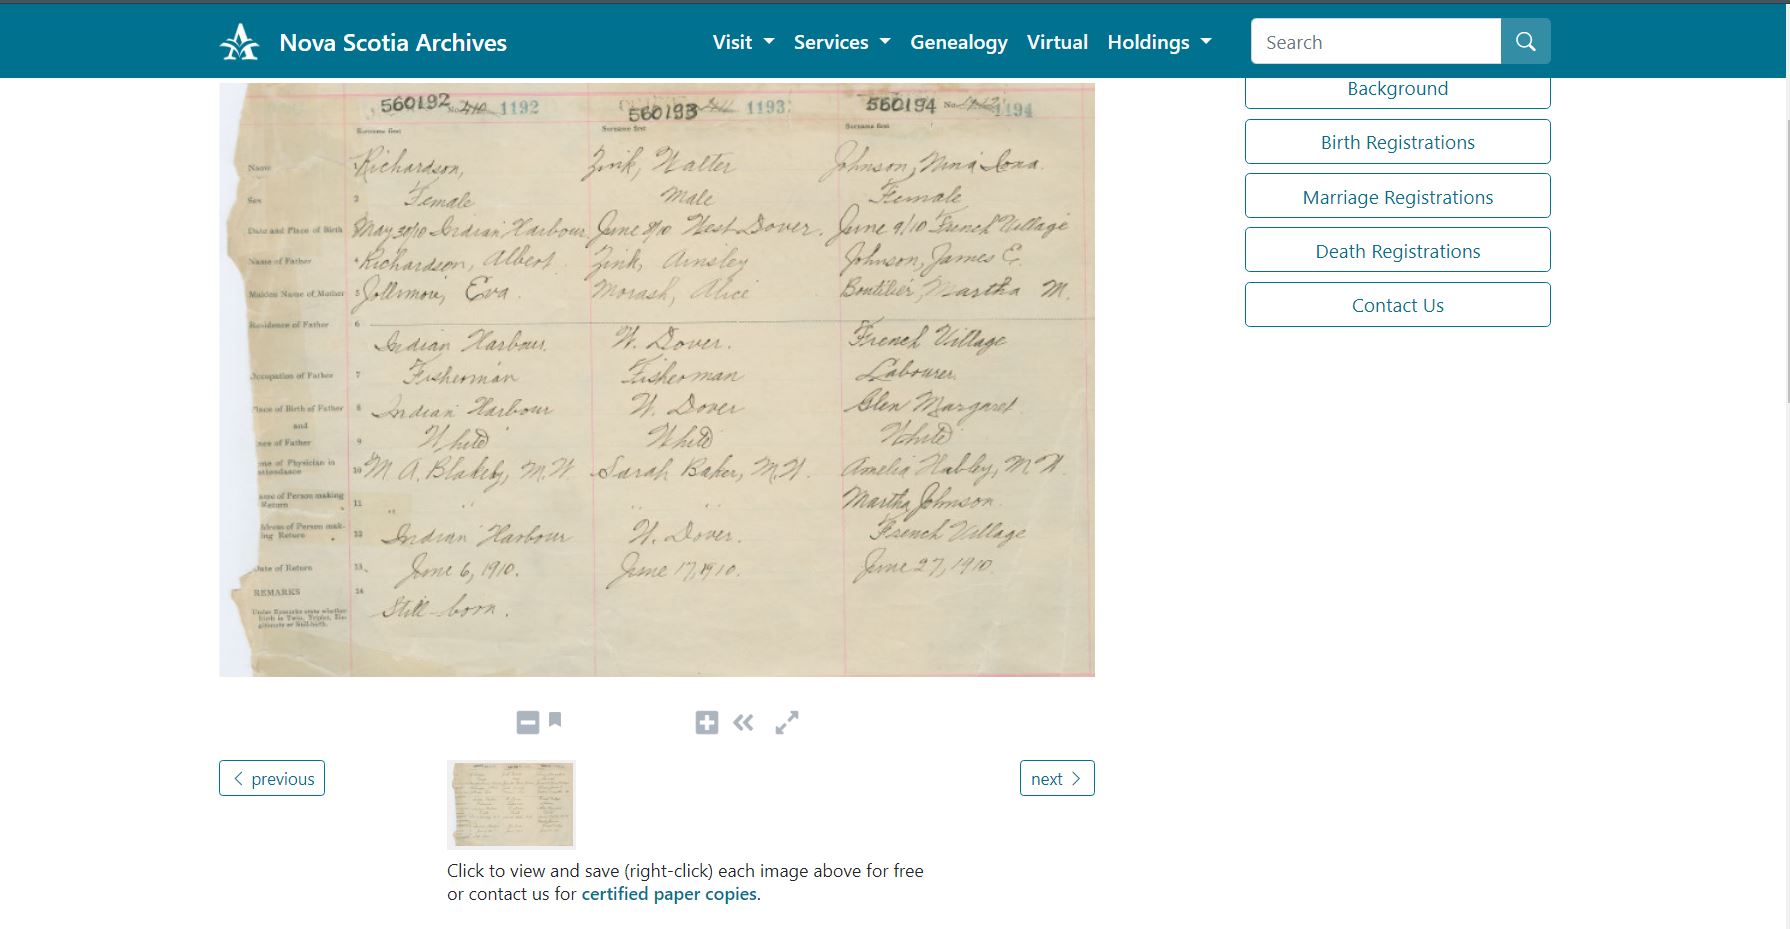 Nova Scotia Archives Visit Services Genealogy Virtual Holdings Search
Background
Birth Registrations
Marriage Registrations
Death Registrations
Contact Us
560192 No. 1192 560193 1193 560194 No. 1194
Surname first Surname first Surname first
Name Richardson, Zink, Walter Johnson, Nina Iona.
Sex 2 Female Male Female
Date and Place of Birth May 30/10 Indian Harbour June West Dover. June 9/10 French Village
Name of Father Richardson, Albert. Zink, Ainsley Johnson, James E.
Maiden Name of Mother 5 Jollimore, Eva. Morash, Alice Boutilier, Martha M.
Residence of Father 6
Indian Harbour. W. Dover. French Village
Occupation of Father 7 Fisherman Fisherman Labourer.
Place of Birth of Father 8 Indian Harbour W. Dover Glen Margaret.
and
of Father 9 White White White
of Physician in attendance 10 M. A. M.W. Sarah Baker, M.W. Amelia Hubley, M.W.
of Person making Return 11 " " " " Martha Johnson.
of Person making Return 12 Indian Harbour W. Dover. French Village
Date of Return 13 June 6, 1910. June 17, 1910. June 27, 1910
REMARKS 14
Under Remarks state whether Still-born.
birth is Twin, Triplet, Ille-
gitimate or Still-birth.
previous next
Click to view and save (right-click) each image above for free
or contact us for certified paper copies.